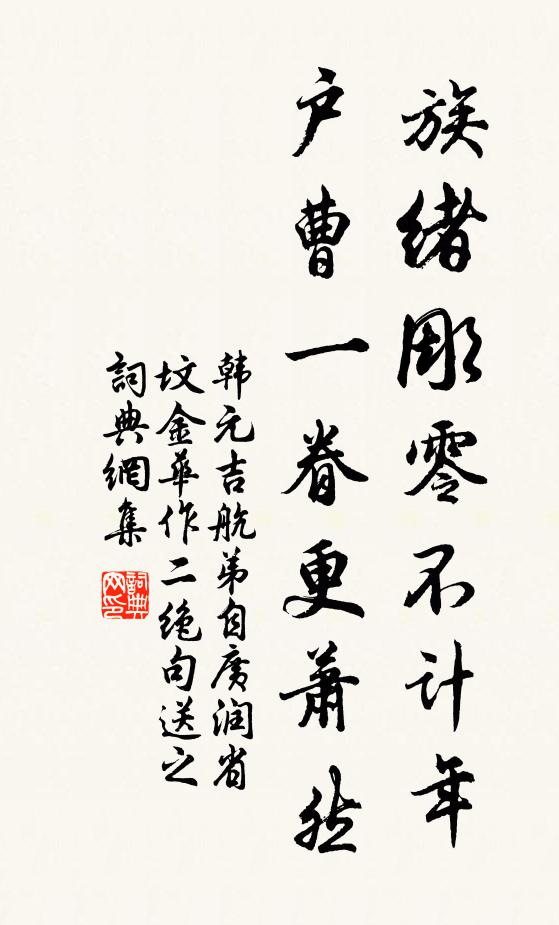 族緒彫零不計年
户曹一眷更蕭然
韩元吉航弟自廣润省
坟金華作二绝句送之
詞典網集
詞典网印